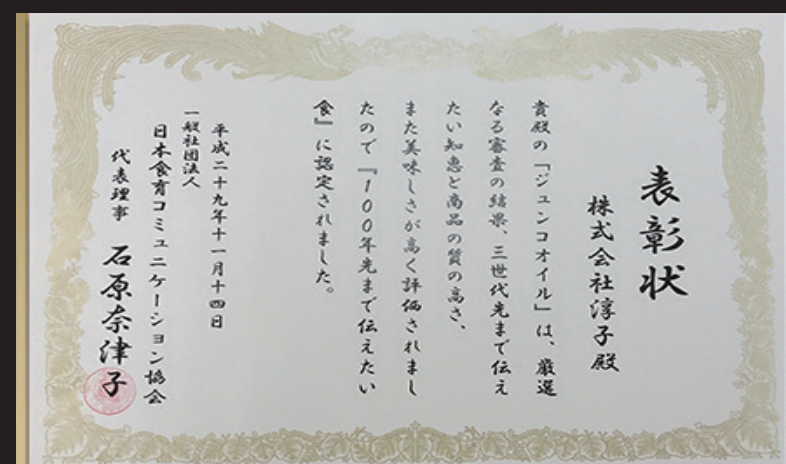 表彰状
株式会社淳子殿
貴殿の「ジュンコオイル」は、厳選
なる審査の結果、三世代先まで伝え
たい知恵と商品の質の高さ、
また美味しさが高く評価されまし
たので『100年先まで伝えたい
食』に認定されました。
平成二十九年十一月十四日
一般社団法人
日本食育コミュニケーション協会
代表理事 石原奈津子